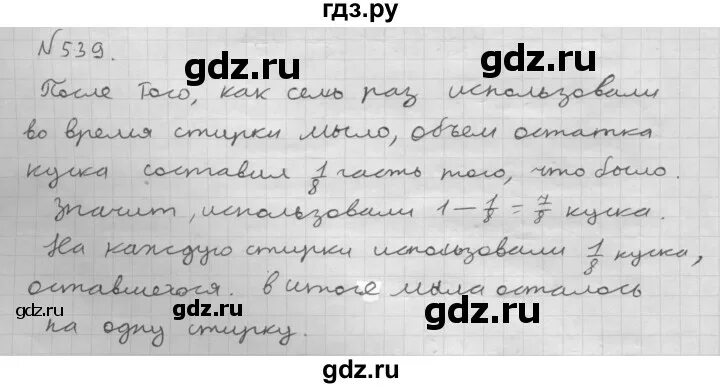 гдз.ру
№539.
gdz.ru gdz.ru
После того, как семь раз использовали
во время стирки мыло, объем остатка
куска составил 1/8 часть того, что было.
Значит, использовали 1 - 1/8 = 7/8 куска.
gdz.ru gdz.ru
На каждую стирки использовали 1/8 куска,
оставшегося. в итоге мыла осталось
на одну стирку.
gdz.ru gdz.ru
gdz.ru